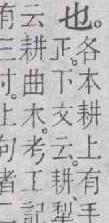 也。各本耕上有手
正。下文云。耕、犁
云耕曲木。考工記
有三寸上句者二